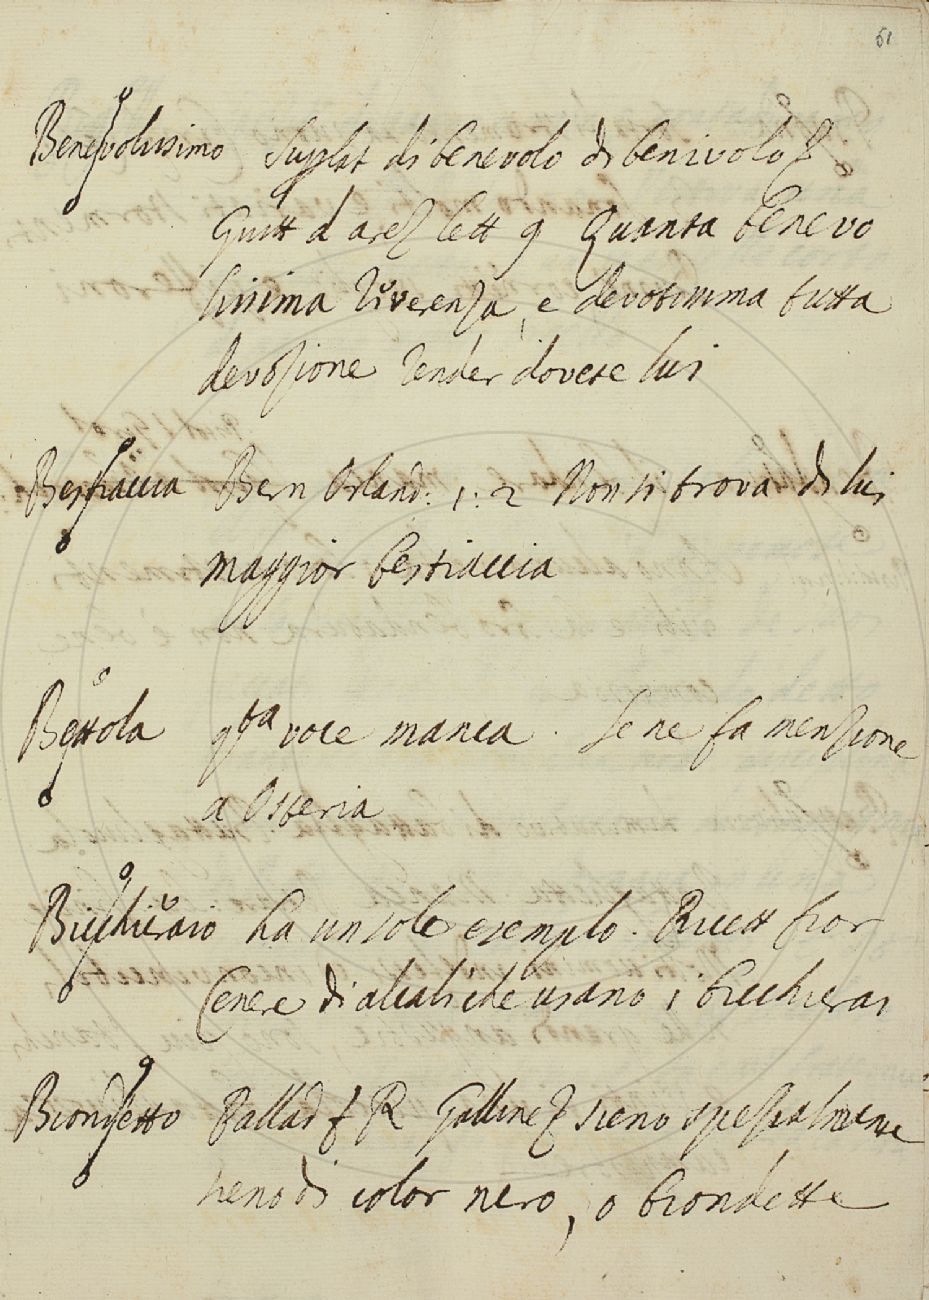 51
Benevolissimo Suplat di benevolo di benivolo
Guitt d arez lett 9 Quanta benevo
lissima riverenza, e devotissima tutta
devozione render dovete lui
Bestiaccia Bern Orland. 1. 2 Non si trova di lui
maggior bestiaccia
Bettola qsta voce manca. Se ne fa menzione
a Osteria
Bicchieraio ha un solo esempio. Ricett fior
Cenere di alcali che usano i bicchierai
Biondetto Pallad f R Galline sieno spezialmente
sieno di color nero, o biondette